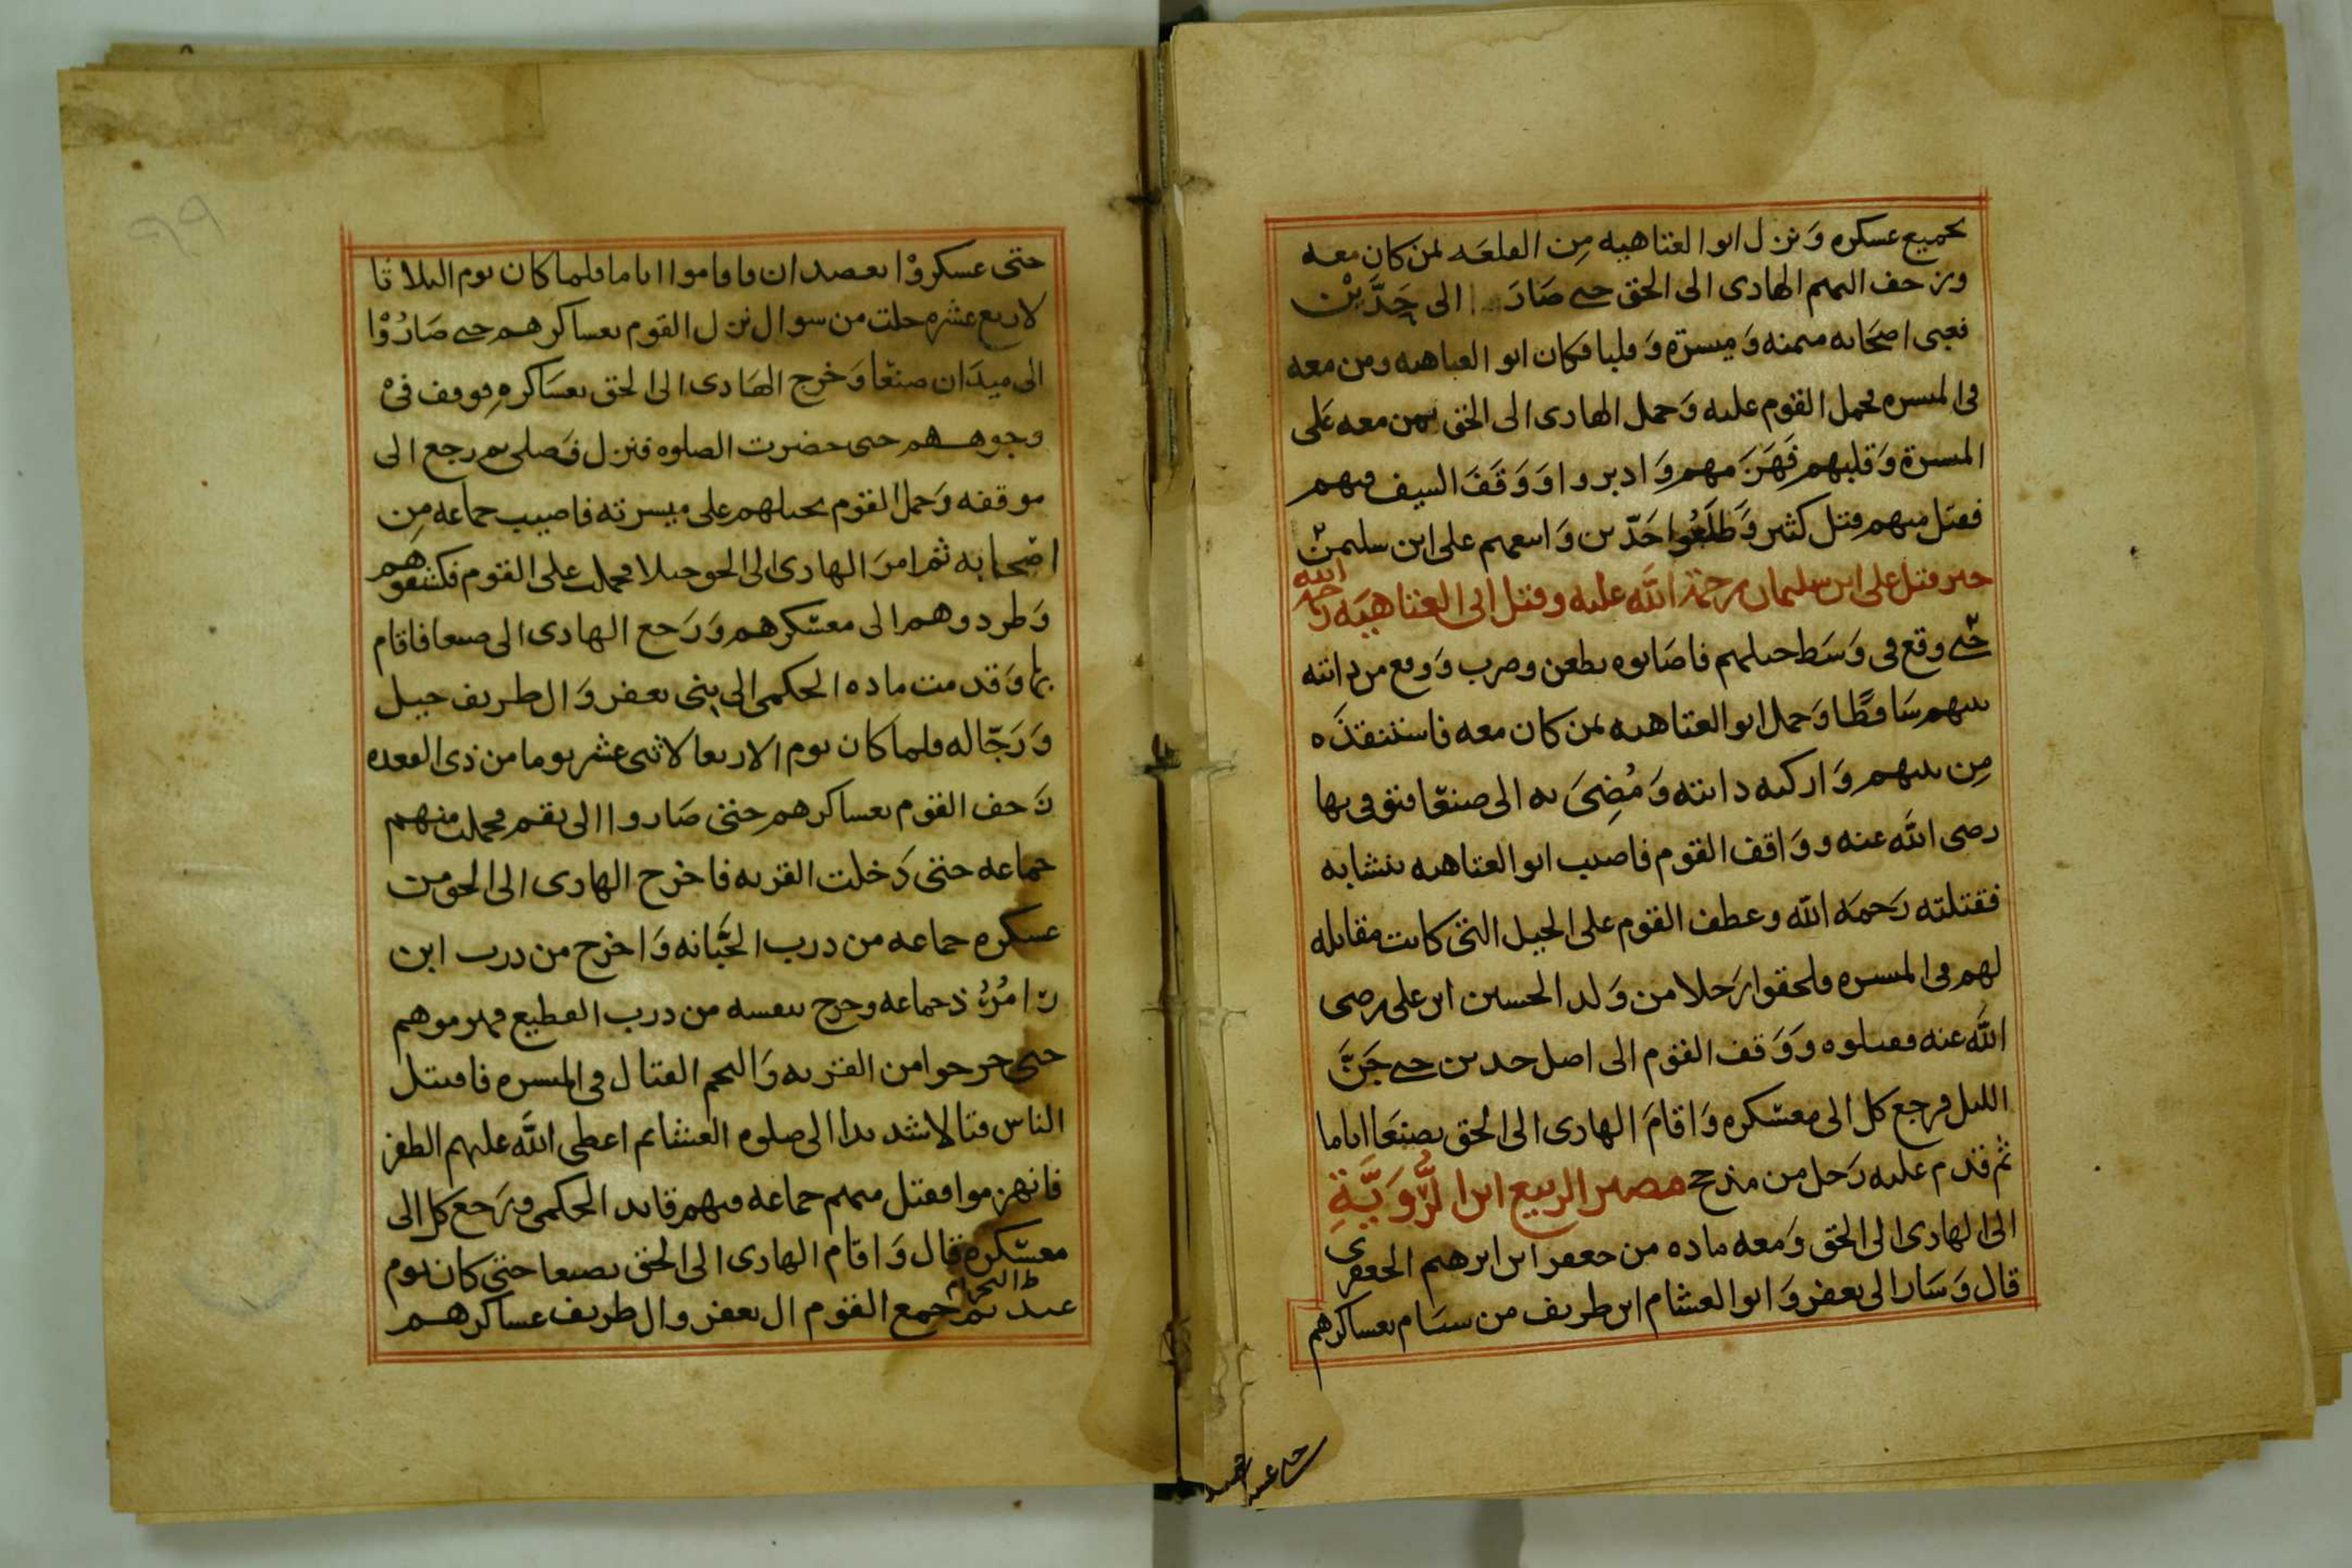 بجميع عسكره وَنزل ابو العتاهيه مِن القلعَه بمن كان معه
وزحف اليهم الهادى الى الحق حتى صَارَ الى حَدَّيْن
فعبى اصحَابه ميمنه وَميسرَة وَقلبا فكان ابو العتاهيه ومن معه
فى الميسره فحمل القوم عليه وَحمل الهادى الى الحق بمن معه عَلى
الميسرة وَقلبهم فَهَزَمهم وَادبروا وَوَقَفَ السيف فيهم
فقتل منهم قتل كثير وَطَلَعُوا حَدّين وَاتبعهم على ابن سليمن
خبر قتل على ابن سليمان رحمَة الله عليه وقتل ابى العتاهيَه رحمه الله
حتى وقع فى وَسَط خيلهم فاصَابوه بطعن وضرب وَوقع من دابته
بينهم سَاقطًا وَحمل ابو العتاهيه بمن كان معه فاستنقذَه
مِن بينهم وَاركبه دابته وَمُضِىَ به الى صنعَا فتوفى بها
رضى الله عنه وَوَاقف القوم فاصيب ابو العتاهيه بنشابه
فقتلته رَحمَه الله وعطف القوم على الخيل التى كانت مقابله
لهم فى الميسره فلحقوا رَجلا من وَلد الحسين ابن على رضى
الله عنه فقتلوه وَوَقف القوم الى اصل حدين حتى جَنَّ
الليل فرجع كل الى معسكره وَاقامَ الهادى الى الحق بصنعَا اياما
ثم قدم عليه رَجل من مذحج مصير الربيع ابن الرُّوَيَّةِ
الى الهادى الى الحق وَمعه ماده من جعفر ابن ابرهيم الجعفرى
قال وَسَار ال يعفر وَابو العشام ابن طريف من سبام بعساكرهم
حتى عسكروا
حتى عسكروْا بعصدان فاقاموا اياما فلما كان يوم الثلاثا
لاربع عشره خلت من شوال نزل القوم بعساكرهم حتى صَارُوْا
الى ميدَان صنعَا وَخرج الهَادى الى الحق بعسَاكرهِ فوقف فىْ
وجوههم حتى حضرت الصلوه فنزل فَصلى ثم رجع الى
موقفه وَحمل القوم بخيلهم على ميسرته فاصيب جماعه مِن
اصحابه ثم امرَ الهادى الى الحق خيلا فحملت على القوم فكشفوهم
وَطردوهم الى معسكرهم وَرَجع الهادى الى صنعا فاقام
بها وَقدمت ماده الحكمى الى بنى يعفر وَال طريف خيل
وَرَجّاله فلما كان يوم الاربعا لاثنى عشر يوما من ذى القعده
زَحف القوم بعساكرهم حتى صَاروا الى نقم فحملت منهم
جماعه حتى دَخلت القريه فاخرج الهادى الى الحق من
عسكره جماعه من درب الجَبَّانه وَاخرج من درب ابن
زامُرُذ جماعه وخرج بنفسه من درب القطيع فهزموهم
حتى خرجوا من القريه وَالتحم القتال فى الميسره فاقتتل
الناس قتالا شديدا الى صلوه العشا ثم اعطى الله عليهم الظفر
فانهزموا فقتل منهم جماعه فيهم قايد الحكمى ورَجع كل الى
معسكره قال وَاقام الهادى الى الحق بصنعا حتى كان يوم
عيد النحر ثم جمع القوم ال يعفر وال طريف عساكرهم
٩٩